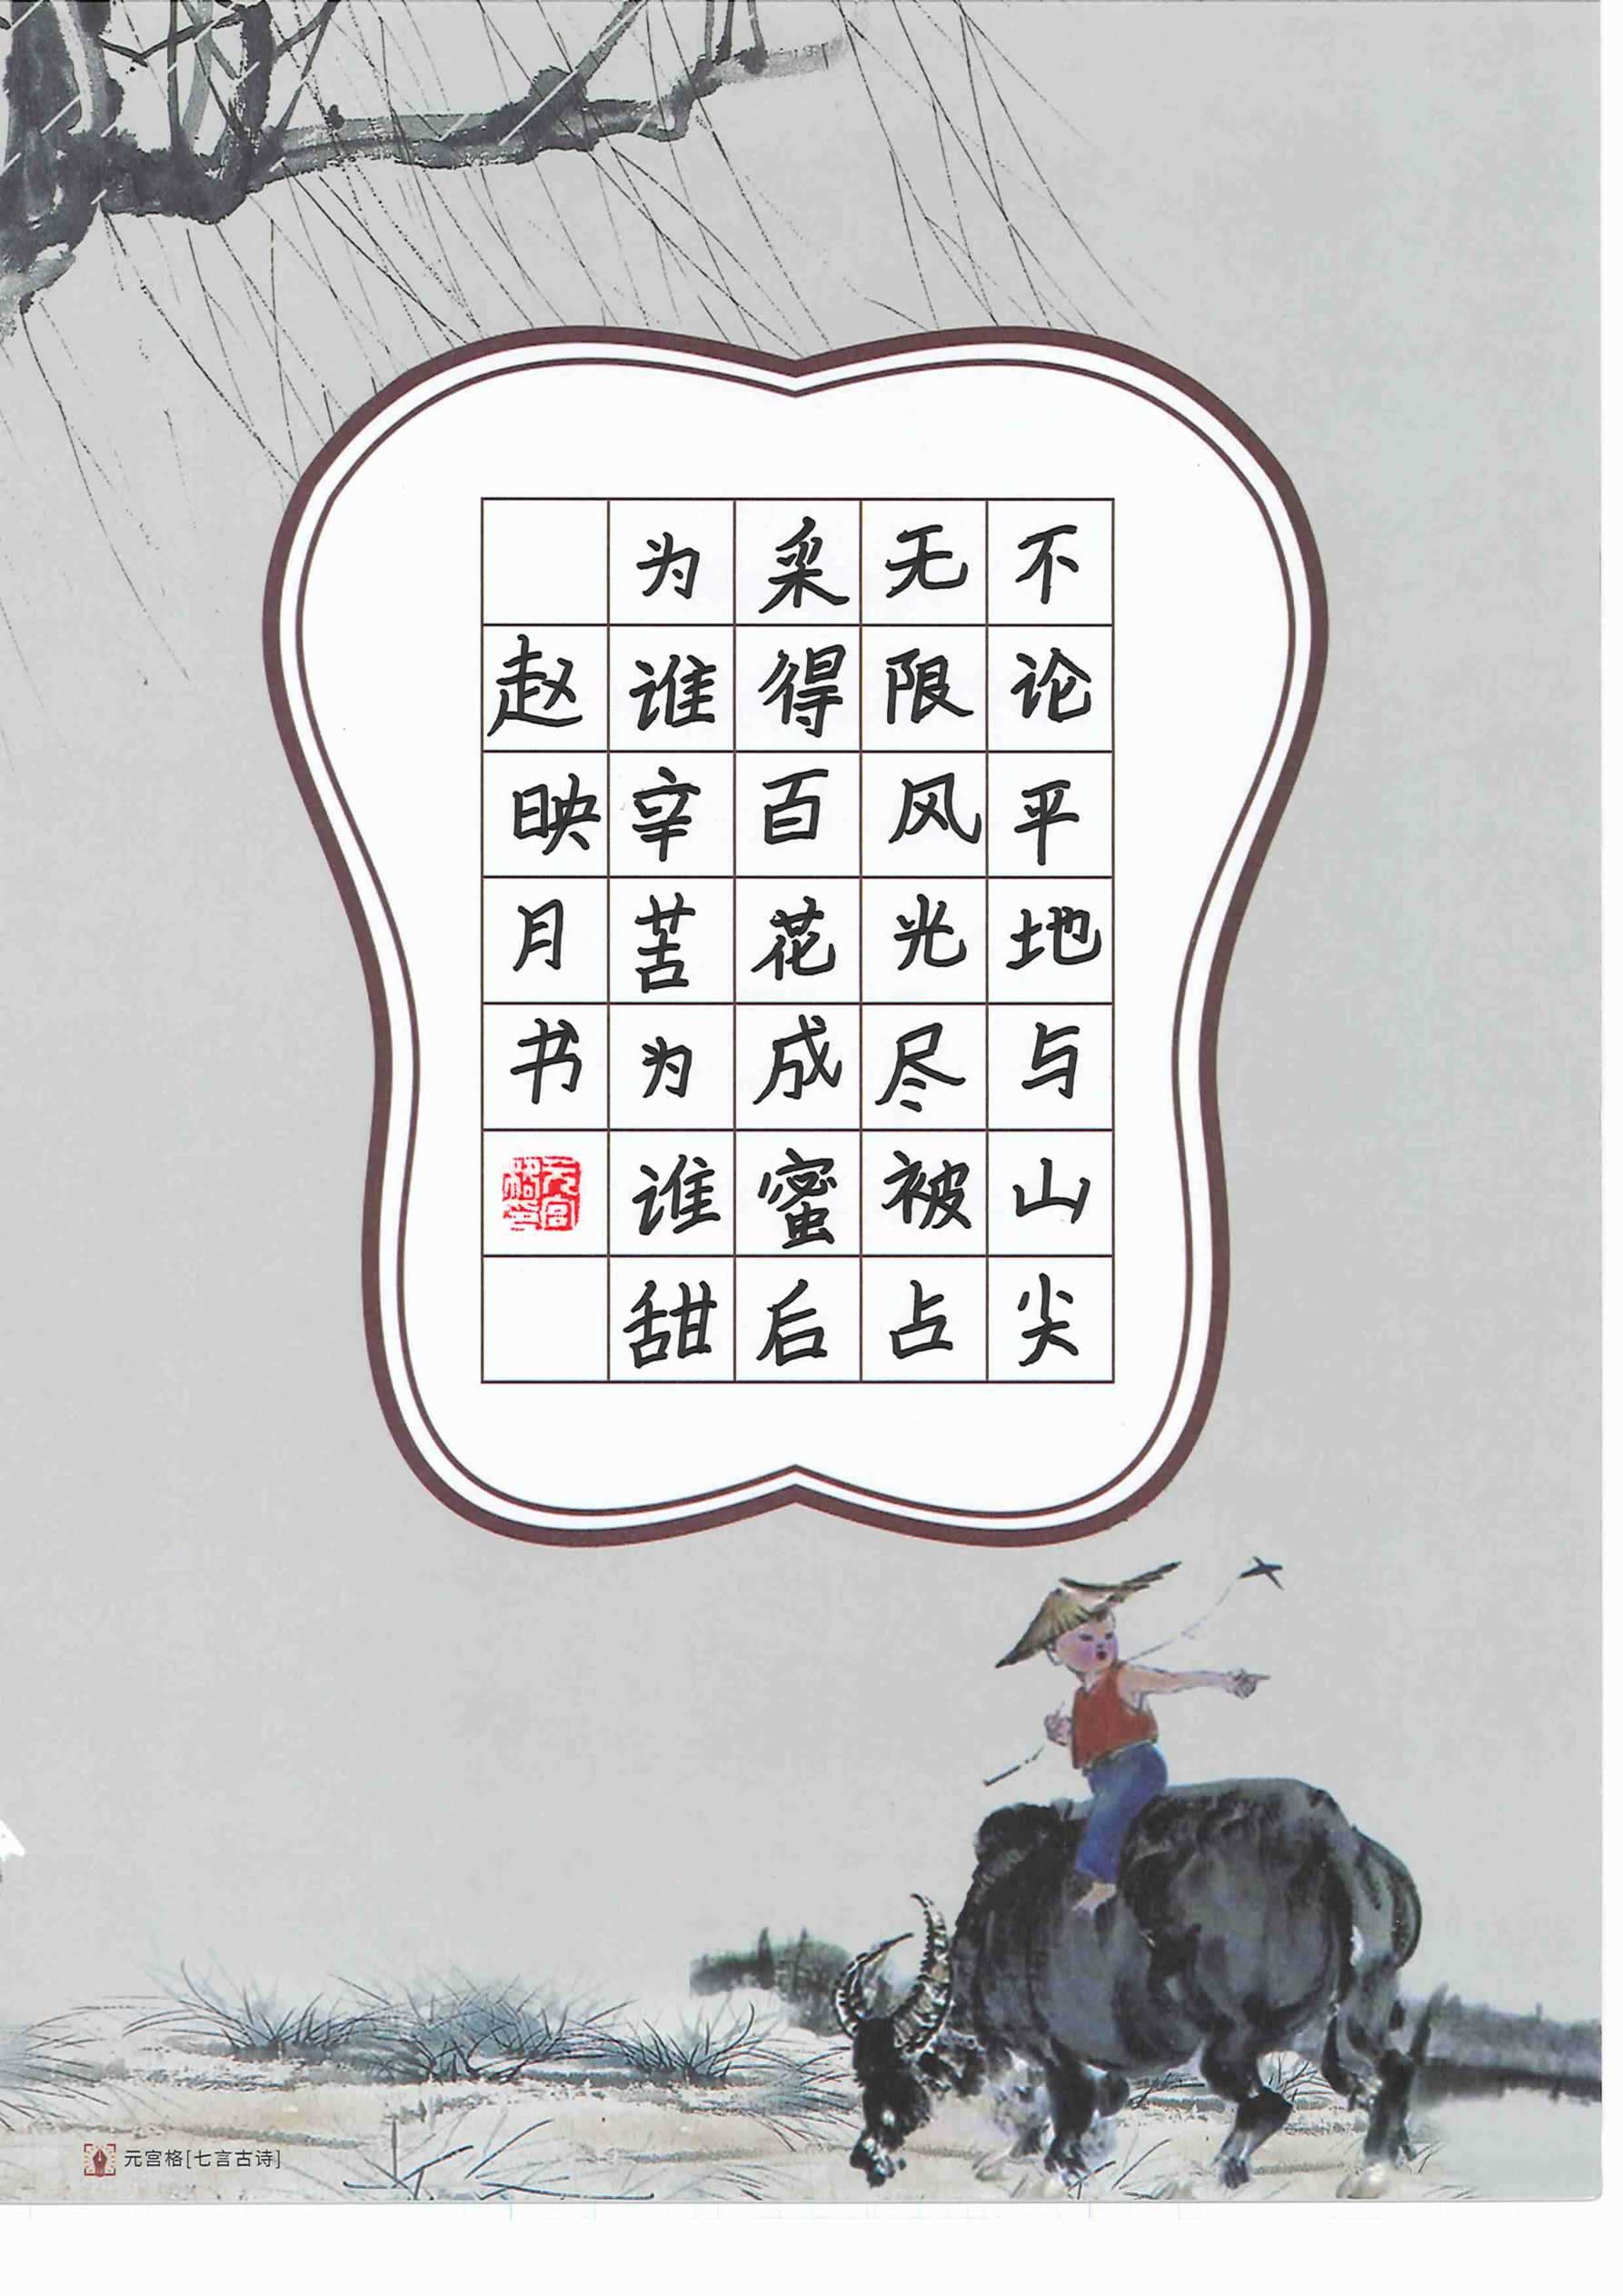 不论平地与山尖
无限风光尽被占
采得百花成蜜后
为谁辛苦为谁甜
赵映月书
元宫格印
元宫格[七言古诗]